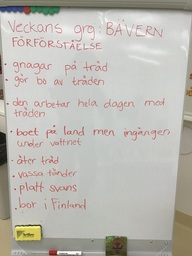 Veckans org: BÄVERN
FÖRFÖRSTÅELSE
• gnagar på träd
• gör bo av träden
• den arbetar hela dagen med
träden
• boet på land men ingången
under vattnet
• äter träd
• vassa tänder
• platt svans
• bor i Finland